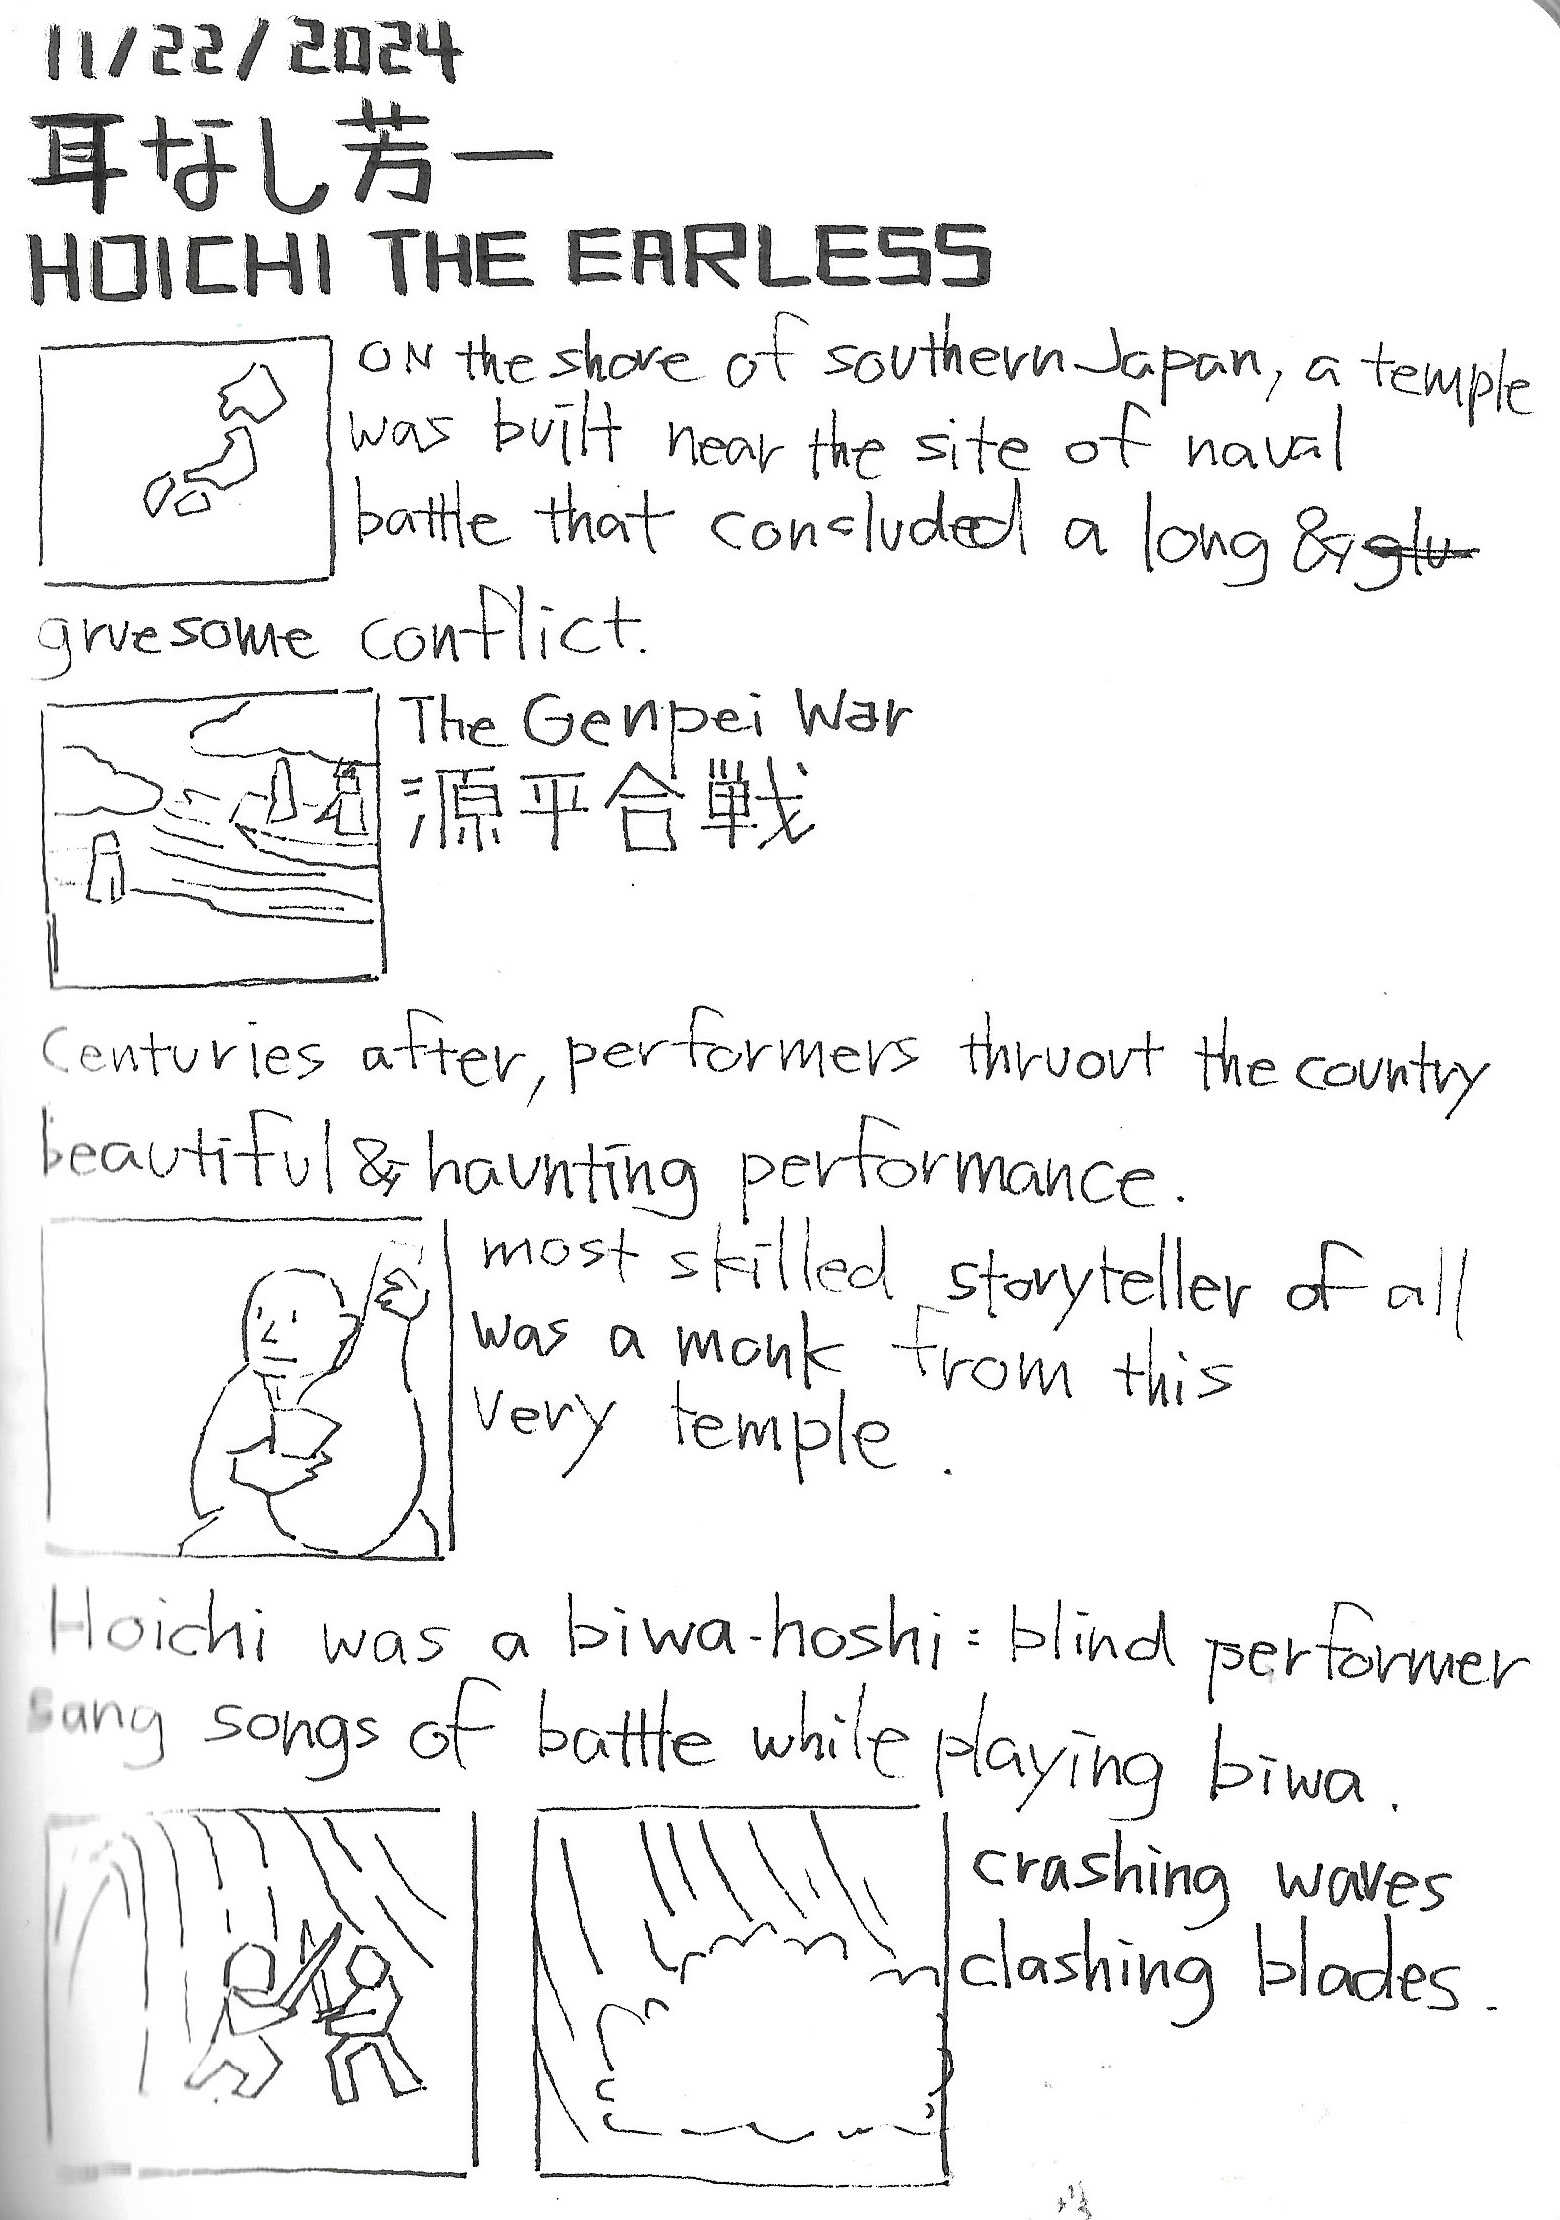 11/22/2024
耳なし芳一
HOICHI THE EARLESS
ON the shore of southern Japan, a temple
was built near the site of naval
battle that concluded a long & glu
gruesome conflict.
The Genpei War
源平合戦
Centuries after, performers thruout the country
beautiful & haunting performance.
most skilled storyteller of all
was a monk from this
very temple.
Hoichi was a biwa-hoshi: blind performer
sang songs of battle while playing biwa.
crashing waves
clashing blades.